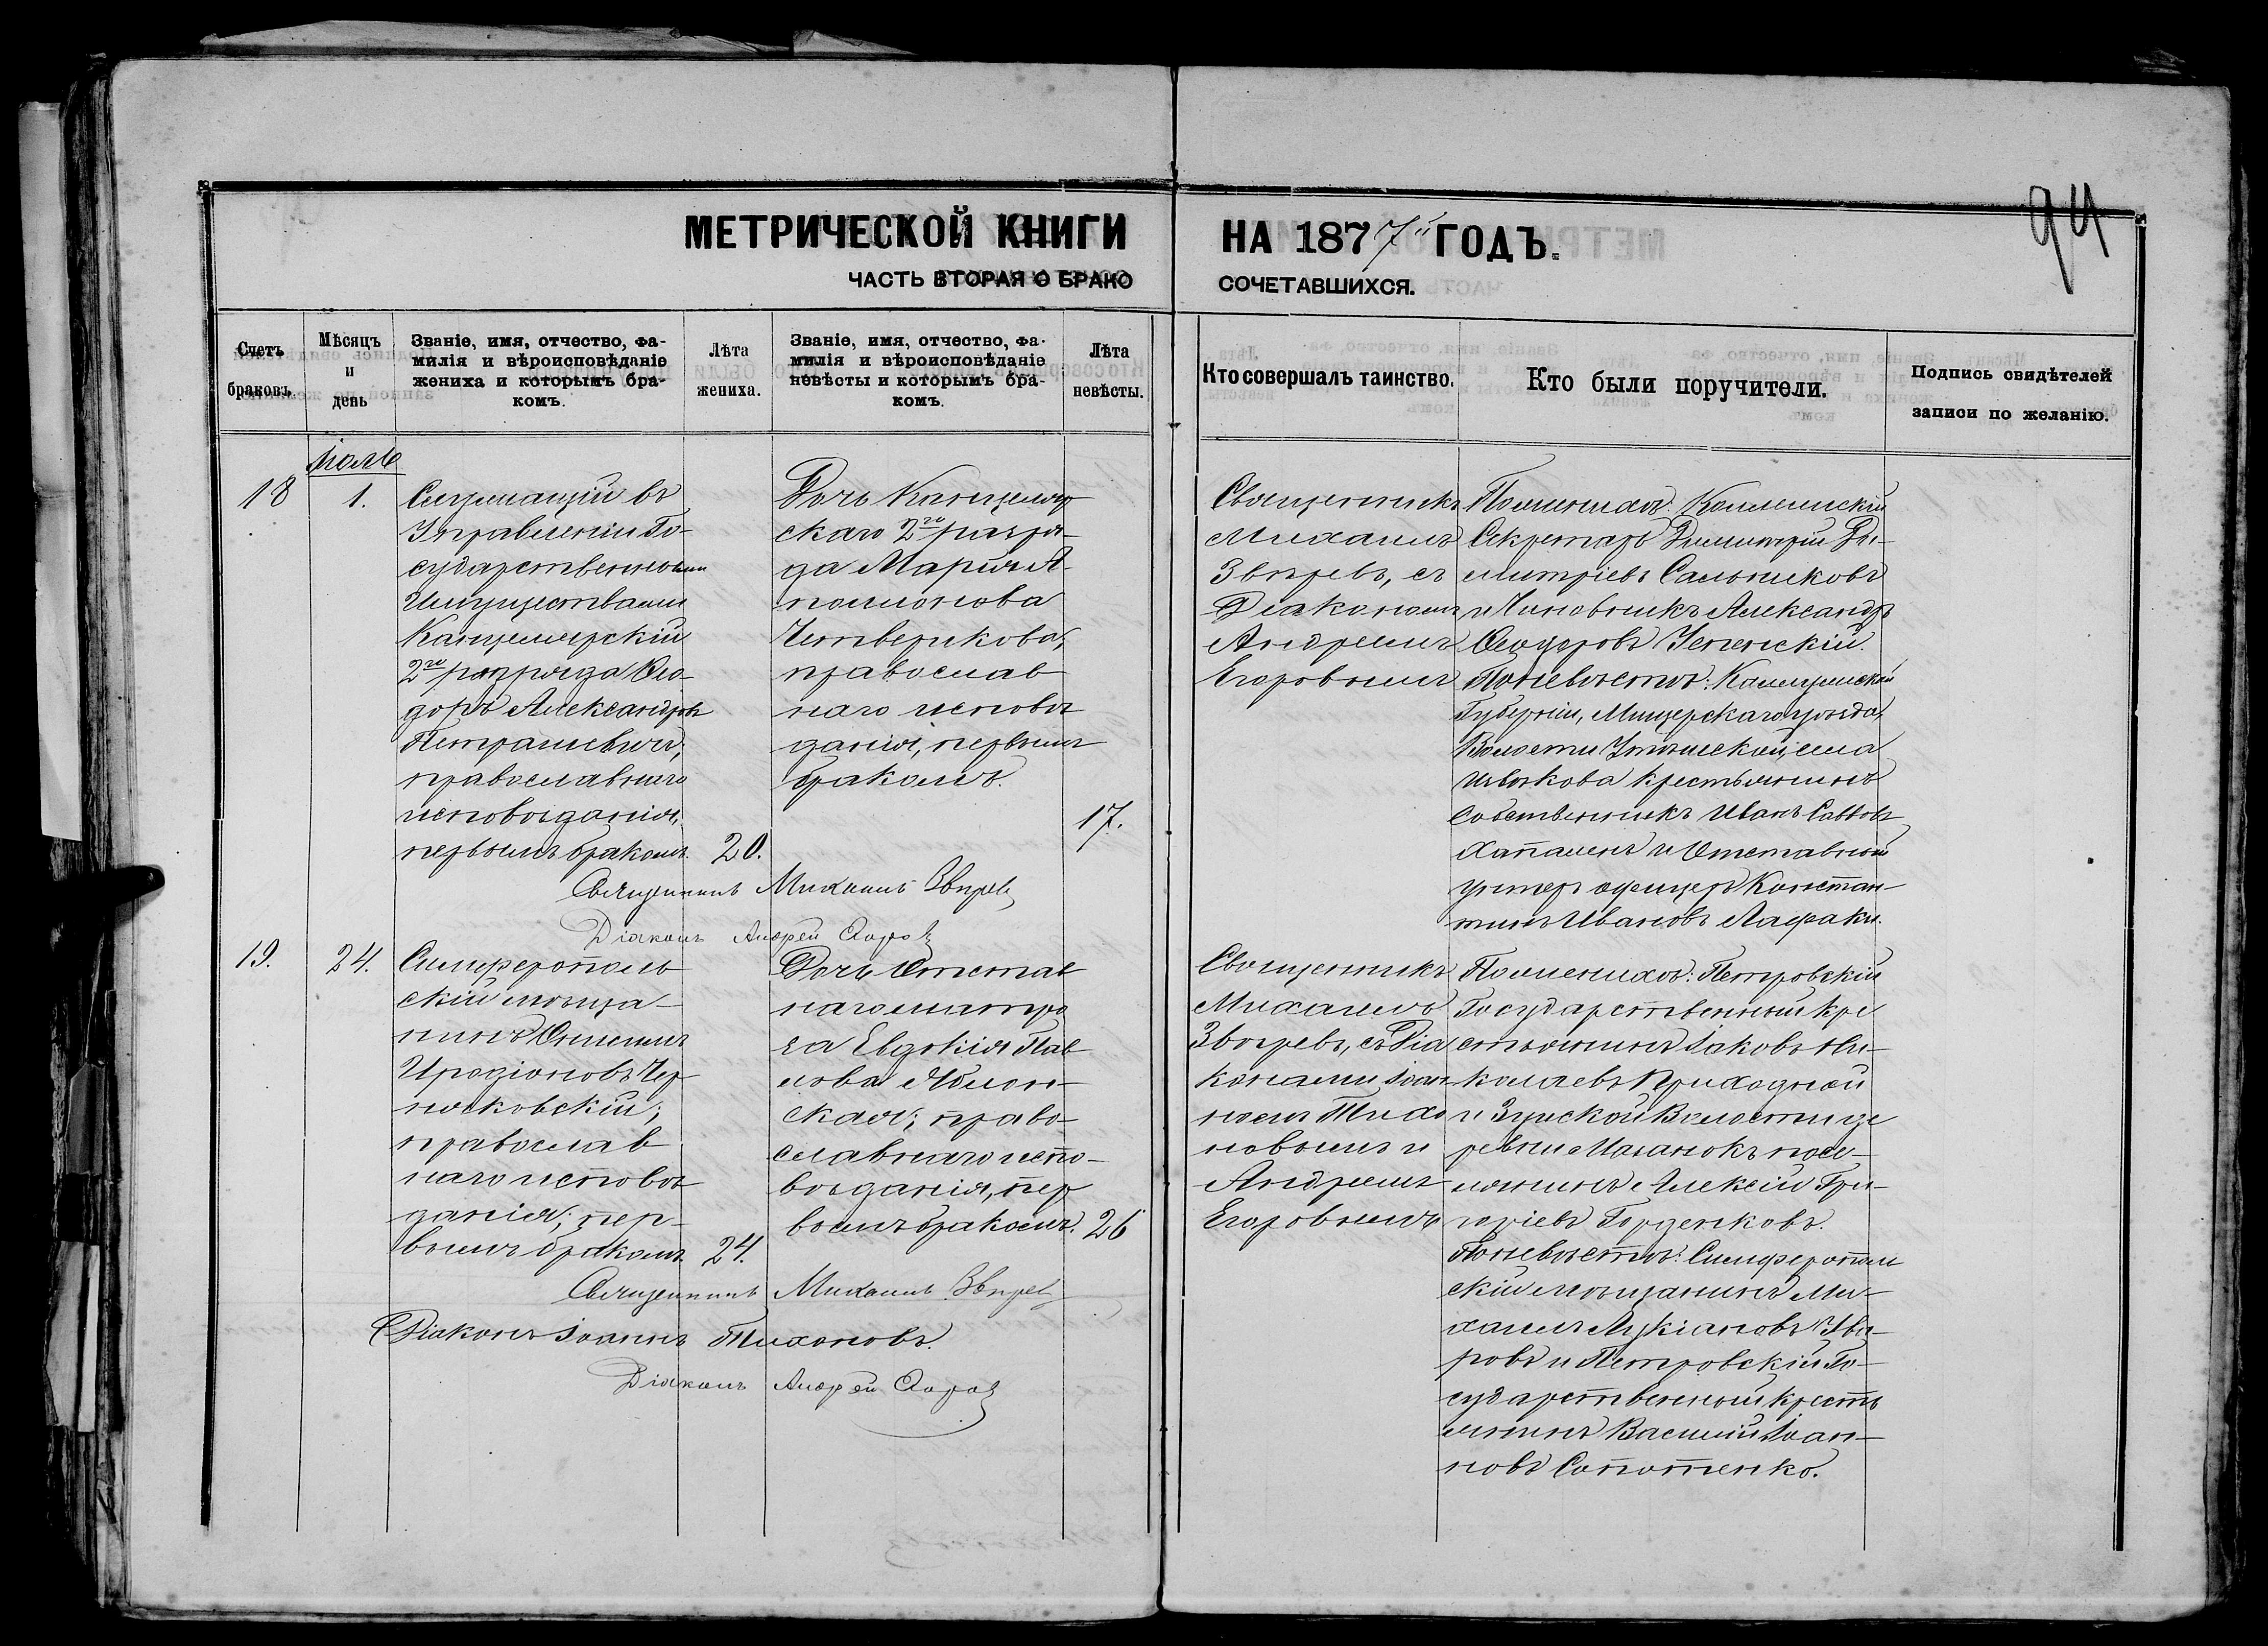 94
МЕТРИЧЕСКОЙ КНИГИ НА 1877й ГОДЪ.
ЧАСТЬ ВТОРАЯ О БРАКО СОЧЕТАВШИХСЯ.
Счетъ браковъ.
Мѣсяцъ и день
Званіе, имя, отчество, фа-
милія и вѣроисповѣданіе
жениха и которымъ бра-
комъ.
Лѣта жениха.
Званіе, имя, отчество, фа-
милія и вѣроисповѣданіе
невѣсты и которымъ бра-
комъ.
Лѣта невѣсты.
Кто совершалъ таинство.
Кто были поручители.
Подпись свидѣтелей
записи по желанію.
18
1.
Служащій въ
Управленіи Го-
сударственными
Имуществами
Канцелярскій
2го разряда Ѳео-
доръ Александровъ
православнаго
исповѣданія,
первымъ бракомъ.
20.
Дочь Канцеляр
скаго 2го разря-
да Марія А-
поллонова
Четверикова,
православ
наго исповѣ
данія, первымъ
бракомъ.
17.
Священникъ
Михаилъ
Звѣревъ, съ
Діакономъ
Андреемъ
Егоровымъ
По женихѣ: Коллежскій
Секретарь Димитрій Ди-
митріевъ Сальниковъ
и Чиновникъ Александръ
Ѳеодоровъ
По невѣстѣ:
Губерніи, уѣзда,
Волости села
крестьянинъ
собственникъ Иванъ Савовъ
и Отставной
унтеръ офицеръ Констан-
тинъ Ивановъ
Священникъ Михаилъ Звѣревъ
Діаконъ Андрей
19.
24.
Симферополь
скій мѣща-
нинъ
Иродіоновъ Чер
няховскій;
православ
наго исповѣ
данія; пер-
вымъ бракомъ
24.
Дочь Отстав
наго матро
за Евдокія Пав
лова
ская; право-
славнаго испо-
вѣданія, пер
вымъ бракомъ.
26
Священникъ
Михаилъ
Звѣревъ, съ Діа
конами Іоан-
номъ Тихо
новымъ и
Андреемъ
Егоровымъ
По женихѣ: Петровскій
Государственный кре
стьянинъ Іаковъ Ни-
колаевъ Приходной
и Зуйской Волости де
ревни посе-
лянинъ Алексій Гри-
горіевъ Горденковъ.
По невѣстѣ: Симферополь
скій мѣщанинъ Ми-
хаилъ Лукіановъ Ува-
ровъ и Петровскій Го-
сударственный кресть
янинъ Василій Іоан-
новъ Сопотенко.
Священникъ Михаилъ Звѣревъ
Діаконъ Іоаннъ Тихоновъ.
Діаконъ Андрей